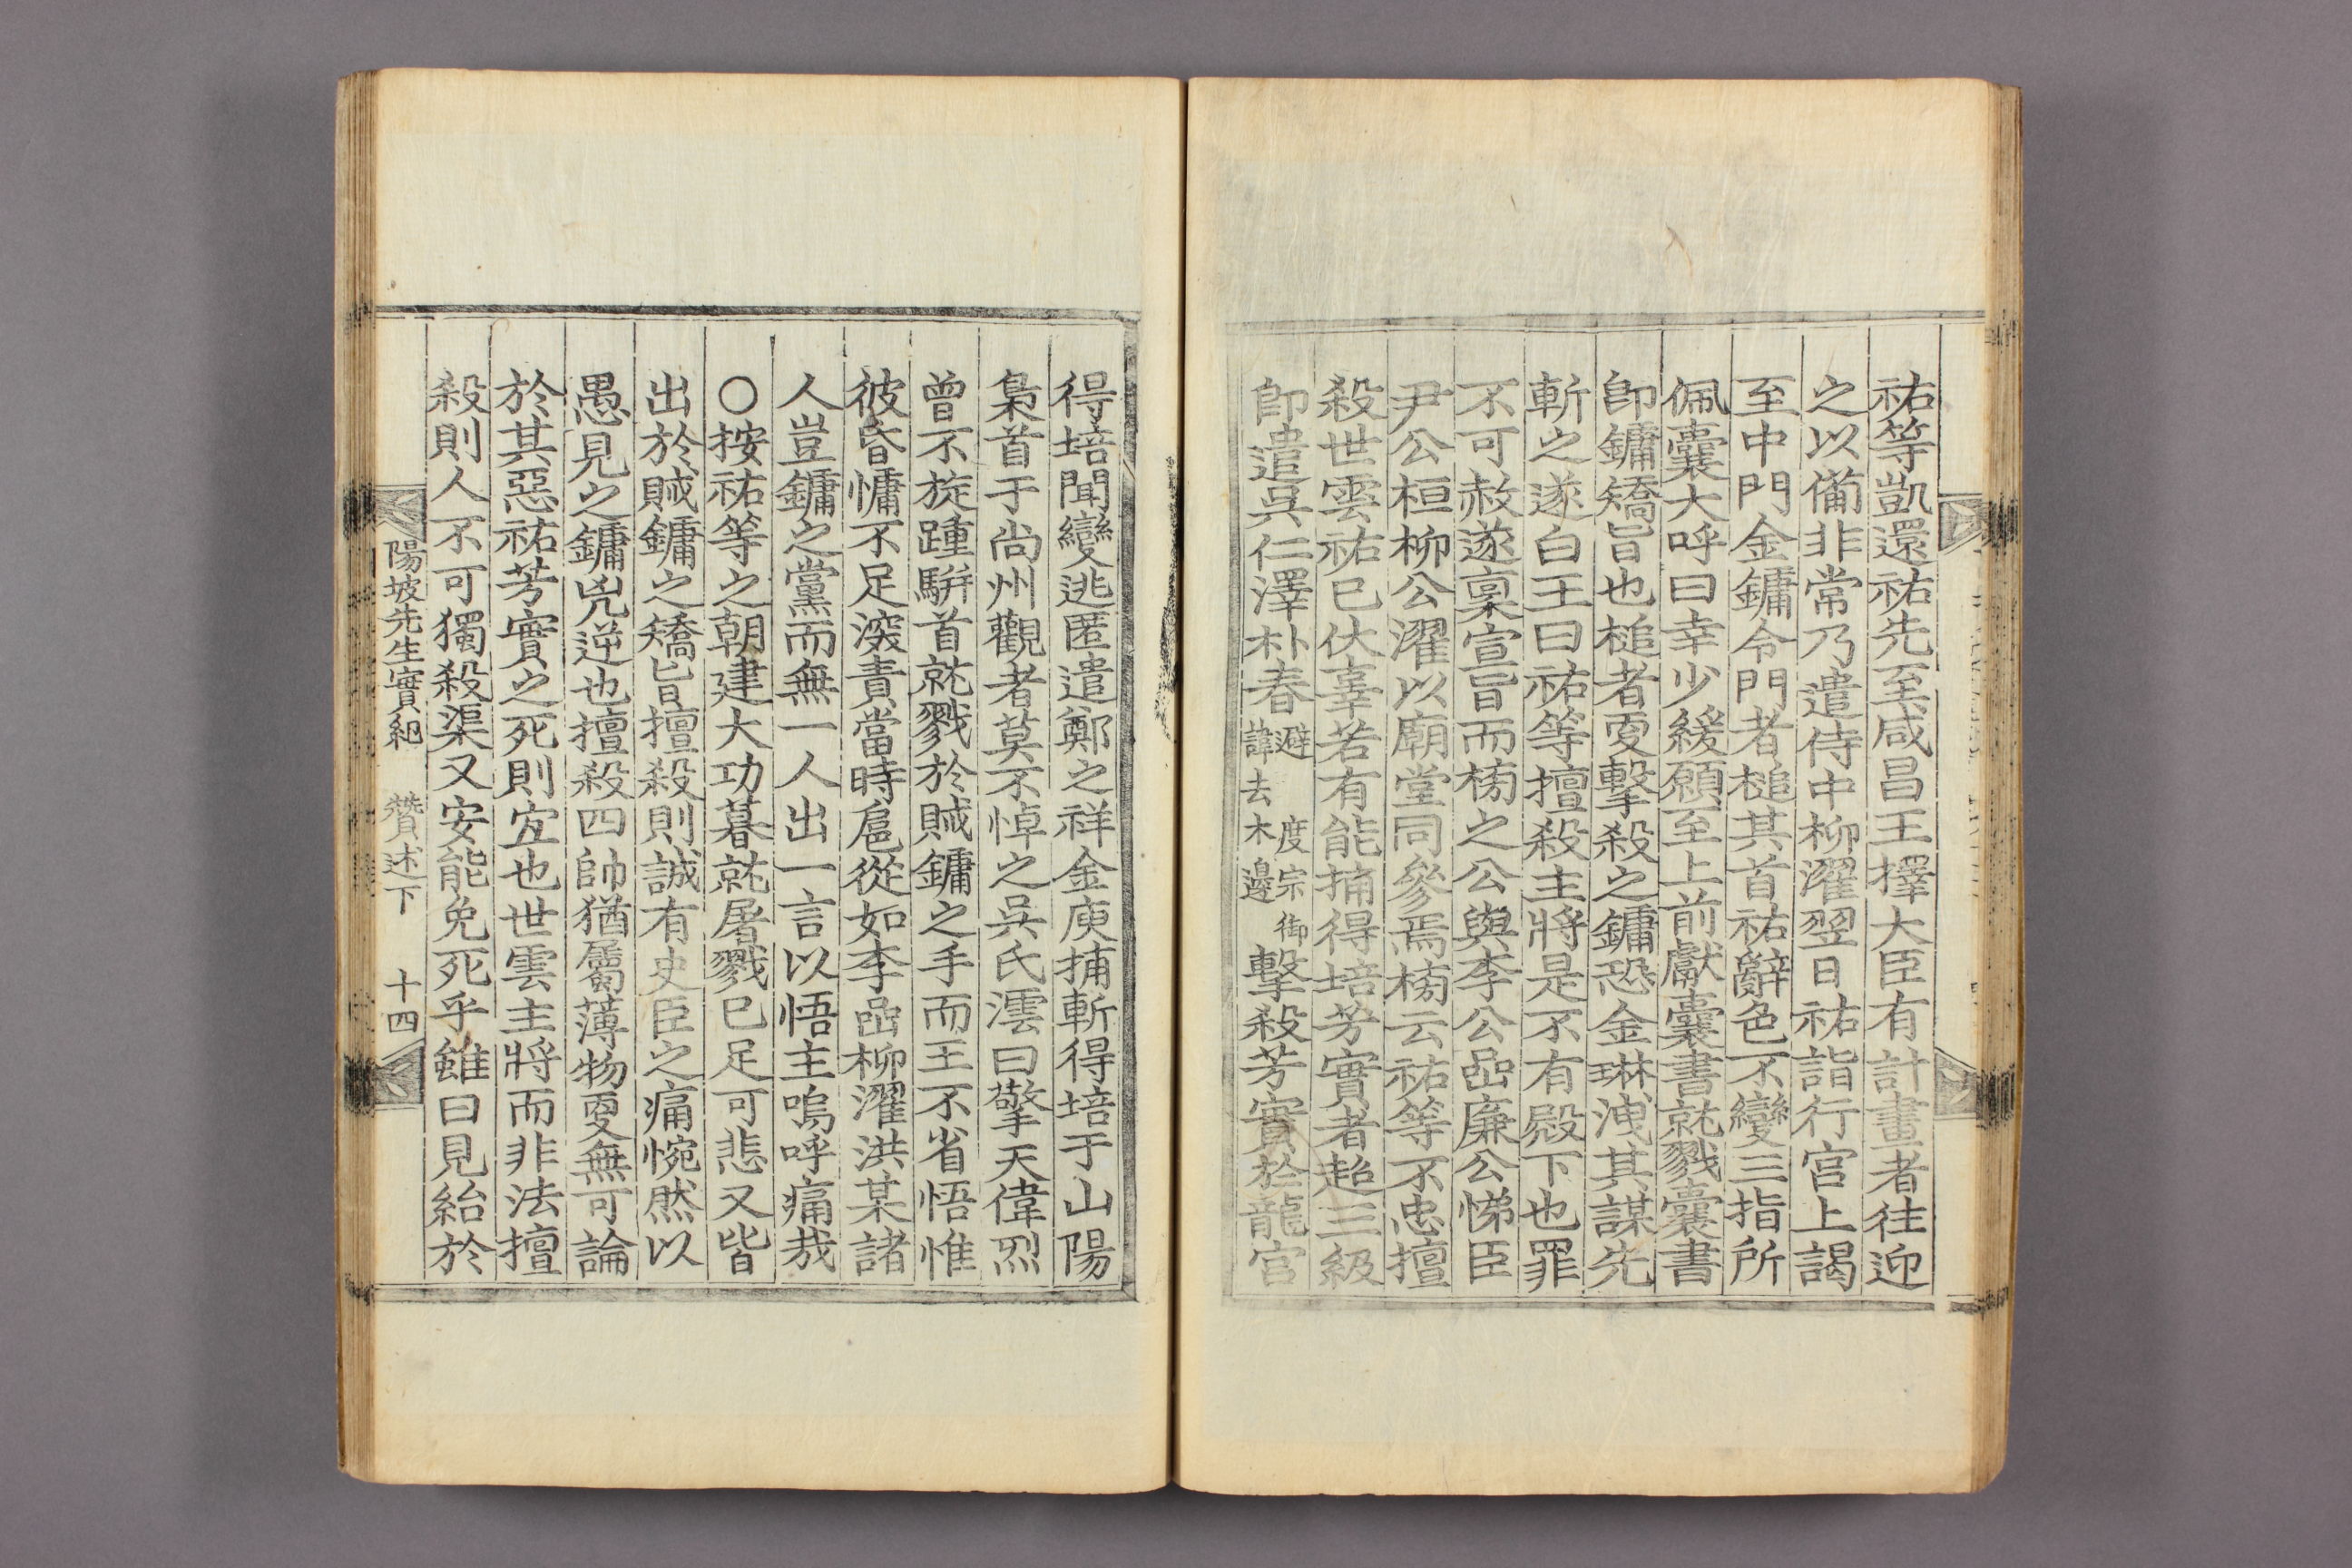 祐等凱還祐先至咸昌王擇大臣有計畫者往迎
之以備非常乃遣侍中柳濯翌日祐詣行宮上謁
至中門金鏞令門者槌其首祐辭色不變三指所
佩囊大呼曰幸少緩願至上前獻囊書就戮囊書
卽鏞矯旨也槌者更擊殺之鏞恐金琳洩其謀先
斬之遂白王曰祐等擅殺主將是不有殿下也罪
不可赦遂稟宣旨而榜之公與李公嵒廉公悌臣
尹公桓柳公濯以廟堂同參焉榜云祐等不忠擅
殺世雲祐已伏辜若有能捕得培芳實者超三級
卽遣吳仁澤朴春避度宗御諱去木邊擊殺芳實於龍宮
得培聞變逃匿遣鄭之祥金庾捕斬得培于山陽
梟首于尚州觀者莫不悼之吳氏澐曰擎天偉烈
曾不旋踵騈首就戮於賊鏞之手而王不省悟惟
彼昏慵不足深責當時扈從如李嵒柳濯洪某諸
人豈鏞之黨而無一人出一言以悟主嗚呼痛哉
○按祐等之朝建大功暮就屠戮已足可悲又皆
出於賊鏞之矯旨擅殺則誠有史臣之痛惋然以
愚見之鏞兇逆也擅殺四帥猶屬薄物更無可論
於其惡祐芳實之死則宜也世雲主將而非法擅
殺則人不可獨殺渠又安能免死乎雖曰見紿於
陽坡先生實紀 贊述下 十四